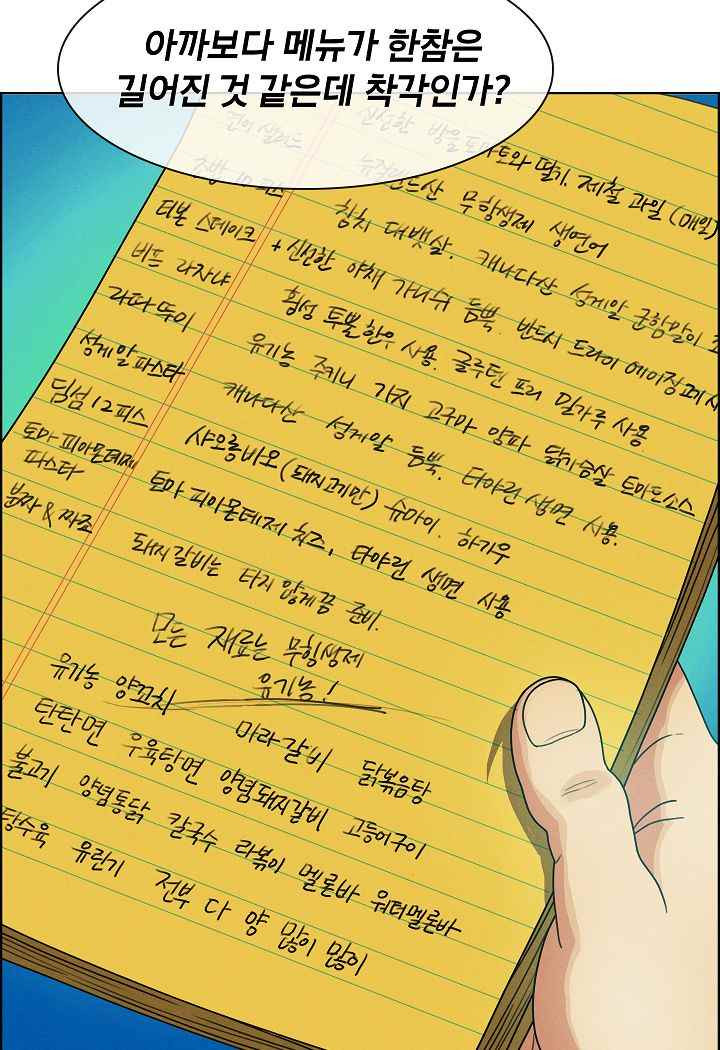 아까보다 메뉴가 한참은
길어진 것 같은데 착각인가?
신선한 방울토마토와 딸기. 제철 과일 (매일)
무항생제 생연어
티본 스테이크
참치 대뱃살. 캐나다산 성게알 군함말이
비프 라자냐
+ 신선한 야채 가니쉬 듬뿍. 반드시 드라이 에이징
라따뚜이
횡성 투뿔 한우 사용. 글루텐 프리 밀가루 사용
성게알 파스타
유기농 주키니 가지 고구마 양파 닭가슴살 토마토소스
딤섬 12피스
캐나다산 성게알 듬뿍. 타야린 생면 사용.
토마 피아몬테제
파스타
샤오롱바오 (돼지고기만) 슈마이. 하가우
분짜 & 짜조
토마 피아몬테제 치즈, 타야린 생면 사용
돼지갈비는 타지 않게끔 준비.
모든 재료는 무항생제
유기농!
유기농 양꼬치 마라갈비 닭볶음탕
탄탄면 우육탕면 양념돼지갈비 고등어구이
불고기 양념통닭 칼국수 라볶이 멜론바 워터멜론바
탕수육 유린기 전부 다 양 많이 많이